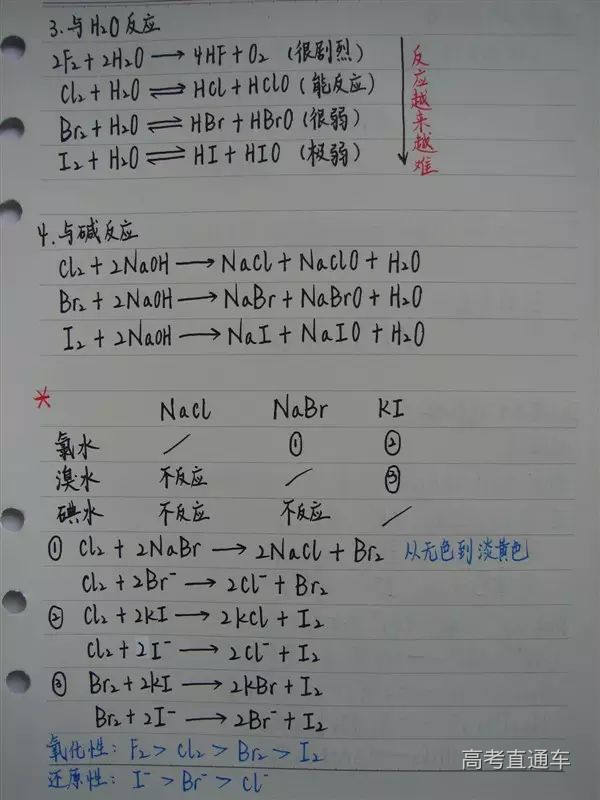 3.与H₂O反应
2F₂+2H₂O⟶4HF+O₂(很剧烈)
Cl₂+H₂O⇌HCl+HClO(能反应)
Br₂+H₂O⇌HBr+HBrO(很弱)
I₂+H₂O⇌HI+HIO(极弱)
反应越来越难
4.与碱反应
Cl₂+2NaOH⟶NaCl+NaClO+H₂O
Br₂+2NaOH⟶NaBr+NaBrO+H₂O
I₂+2NaOH⟶NaI+NaIO+H₂O
* NaCl NaBr KI
氯水 / ① ②
溴水 不反应 / ③
碘水 不反应 不反应 /
① Cl₂+2NaBr⟶2NaCl+Br₂ 从无色到淡黄色
Cl₂+2Br⁻⟶2Cl⁻+Br₂
② Cl₂+2KI⟶2KCl+I₂
Cl₂+2I⁻⟶2Cl⁻+I₂
③ Br₂+2KI⟶2KBr+I₂
Br₂+2I⁻⟶2Br⁻+I₂
氧化性:F₂>Cl₂>Br₂>I₂
还原性:I⁻>Br⁻>Cl⁻
高考直通车